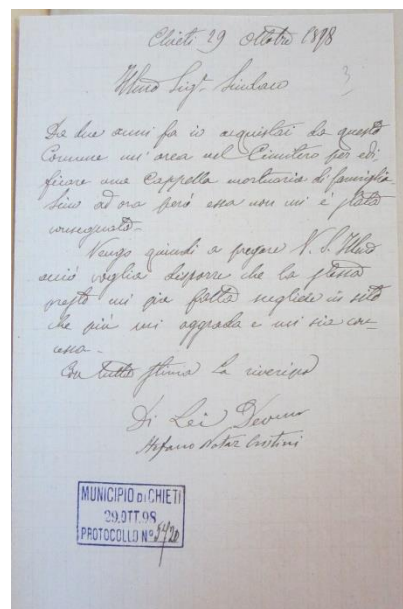 Chieti 29 Ottobre 1898
Illmo Sigr. Sindaco
3
Da due anni fa io acquistai da questo
Comune un'area nel Cimitero per edi-
ficare una Cappella mortuaria di famiglia.
Sino ad ora però essa non mi è stata
consegnata.
Vengo quindi a pregare V. S. Illma
acciò voglia disporre che la stessa
presto mi sia fatta scegliere in sito
che più mi aggrada e mi sia con-
cessa.
Con tutta stima La riverisco
Di Lei Devmo
Stefano Notar
MUNICIPIO DI CHIETI
29.OTT.98
PROTOCOLLO No 5420